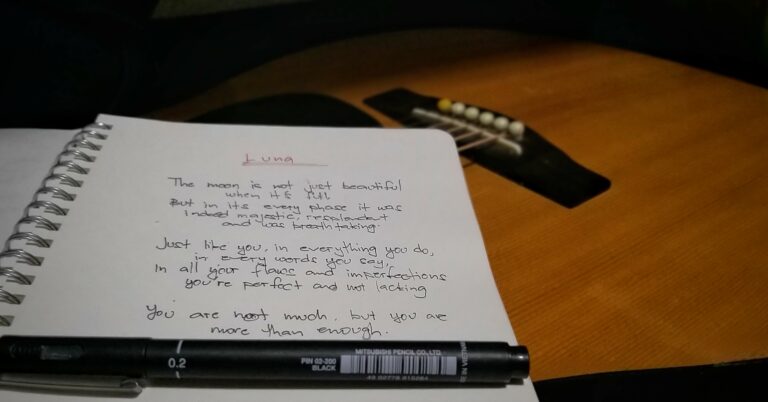 Luna
The moon is not just beautiful
when it's full
But in its every phase it was
indeed majestic, resplendent
and was breathtaking.
Just like you, in everything you do,
in every words you say,
In all your flaws and imperfections
you're perfect and not lacking
You are not much, but you are
more than enough.
0.2
PIN 02-200
BLACK
MITSUBISHI PENCIL CO., LTD.